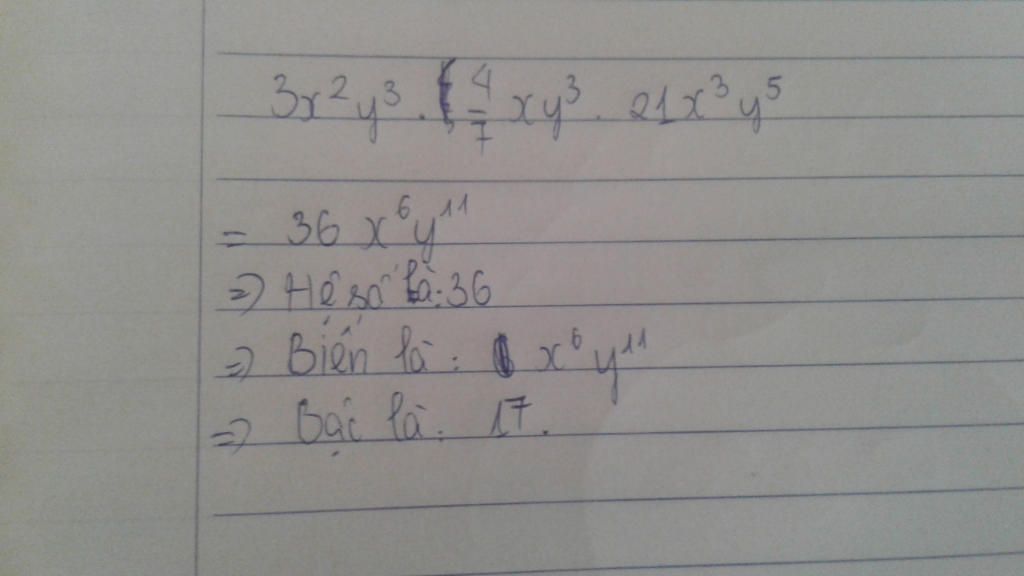 3x²y³ . 4/7 xy³ . 21x³y⁵
= 36 x⁶y¹¹
=) Hệ số là: 36
=) Biến là: x⁶y¹¹
=) Bậc là: 17.